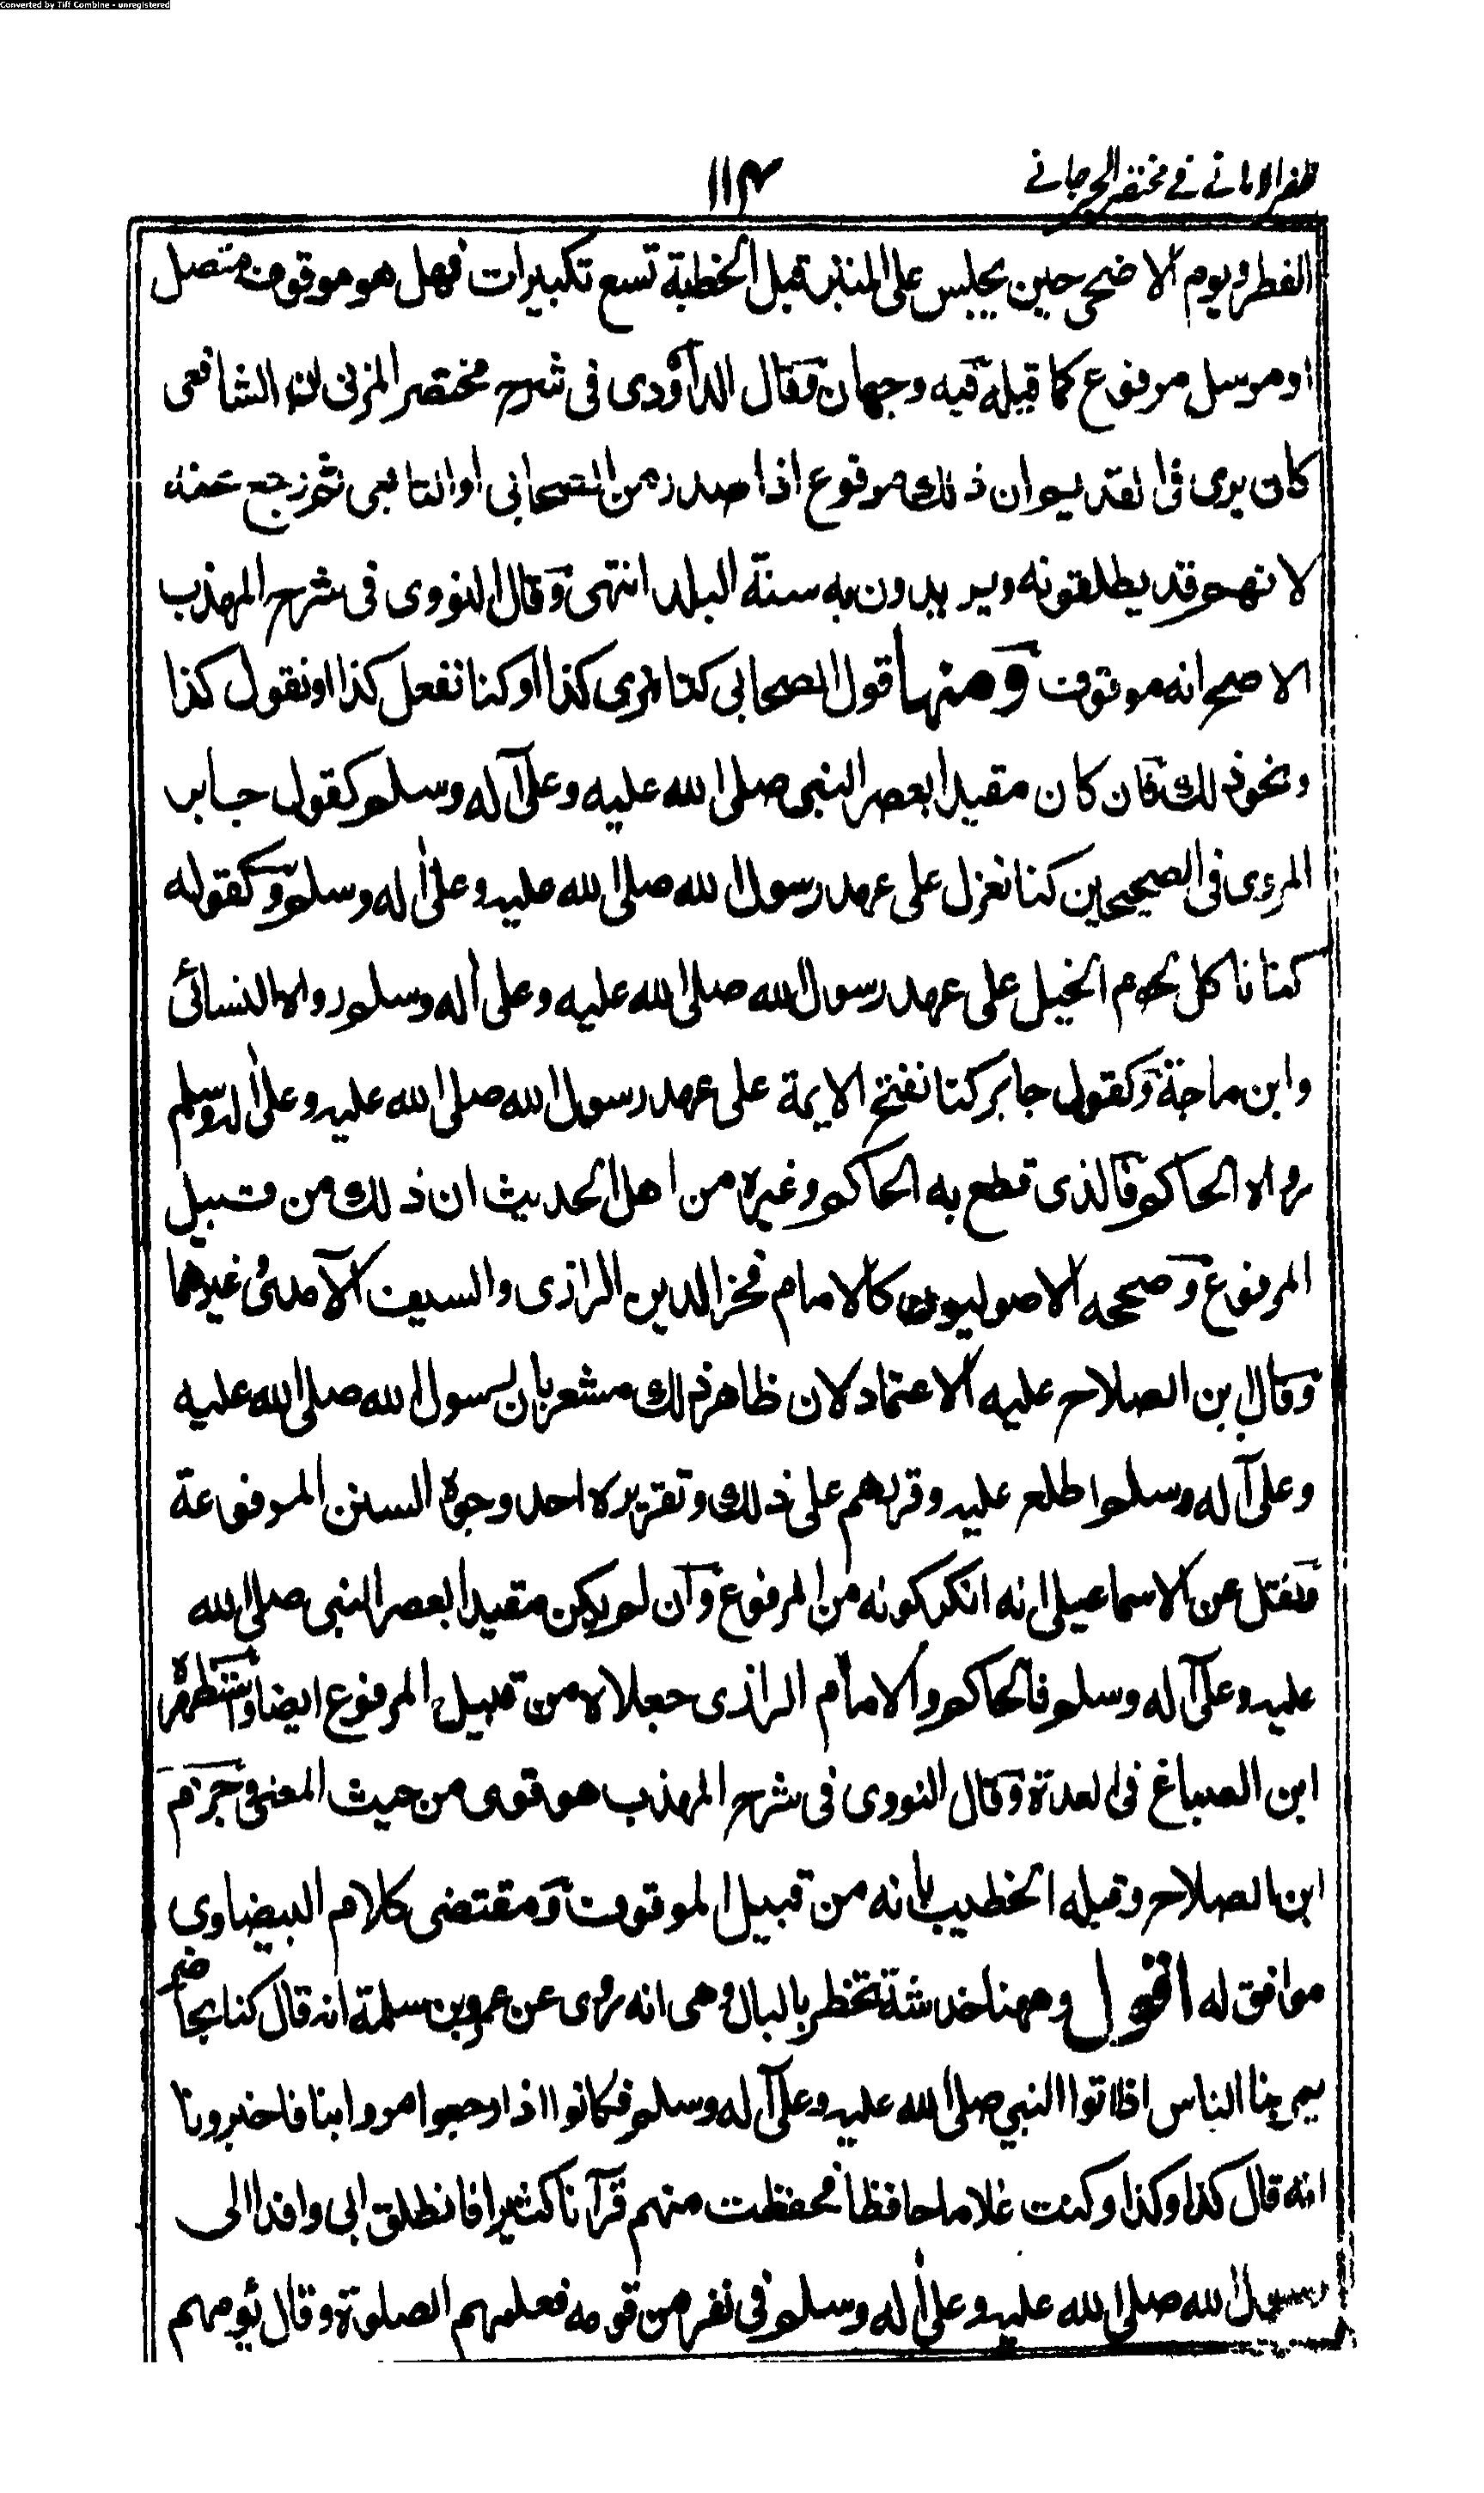 Converted by Tiff Combine - unregistered
ظفر الامانے فے مختصر الجرجانے
۱۱۴
الفطر ويوم الاضحى حين يجلس على المنبر قبل الخطبة تسع تكبيرات فهل هو موقوف متصل
او مرسل مرفوع كما قبله فيه وجهان فقال الداؤدى فى شرح مختصر المزنى ان الشافعى
كان يرى فى القديم ان ذلك مرفوع اذا صدر من الصحابى او التابعى ثم رجع عنه
لانهم قد يطلقونه ويريدون به سنة البلد انتهى وقال النووى فى شرح المهذب
الاصح انه موقوف ومنها قول الصحابى كنا نرى كذا او كنا نفعل كذا او نقول كذا
ونحو ذلك فان كان مقيدا بعصر النبى صلى الله عليه وعلى آله وسلم كقول جابر
المروى فى الصحيحين كنا نعزل على عهد رسول الله صلى الله عليه وعلى اله وسلم وكقوله
كنا ناكل لحوم الخيل على عهد رسول الله صلى الله عليه وعلى اله وسلم رواه النسائى
وابن ماجة وكقول جابر كنا نفتح الايمة على عهد رسول الله صلى الله عليه وعلى اله وسلم
رواه الحاكم فالذى قطع به الحاكم وغيره من اهل الحديث ان ذلك من قبيل
المرفوع وصححه الاصوليون كالامام فخر الدين الرازى والسيف الآمدى وغيرهما
وقال ابن الصلاح عليه الاعتماد لان ظاهر ذلك مشعر بان رسول الله صلى الله عليه
وعلى آله وسلم اطلع عليه وقررهم على ذلك وتقريره احد وجوه السنن المرفوعة
ونقل عن الاسماعيلى انه انكر كونه من المرفوع وان لم يكن مقيدا بعصر النبى صلى الله
عليه وعلى آله وسلم فالحاكم والامام الرازى جعلاه من قبيل المرفوع ايضا واستظهره
ابن الصباغ فى العدة وقال النووى فى شرح المهذب هو قوى من حيث المعنى وجزم
ابن الصلاح وقبله الخطيب بانه من قبيل الموقوف ومقتضى كلام البيضاوى
موافق له اقول وههنا خدشة تخطر بالبال وهى انه روى عن عمرو بن سلمة انه قال كنا بحاضر
يمر بنا الناس اذا اتوا النبى صلى الله عليه وعلى آله وسلم فكانوا اذا رجعوا مروا بنا فاخبرونا
انه قال كذا وكذا وكنت غلاما حافظا فحفظت منهم قرآنا كثيرا فانطلق ابى وافدا الى
رسول الله صلى الله عليه وعلى اله وسلم فى نفر من قومه فعلمهم الصلوة وقال يؤمهم